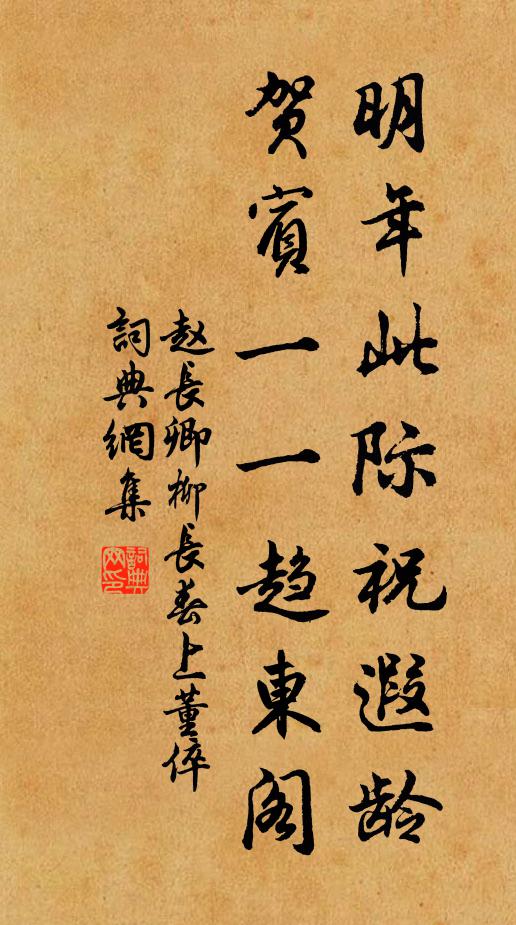 明年此际祝遐龄
贺賓一一趋東阁
赵長卿柳長春上董倅
詞典網集
詞典网印